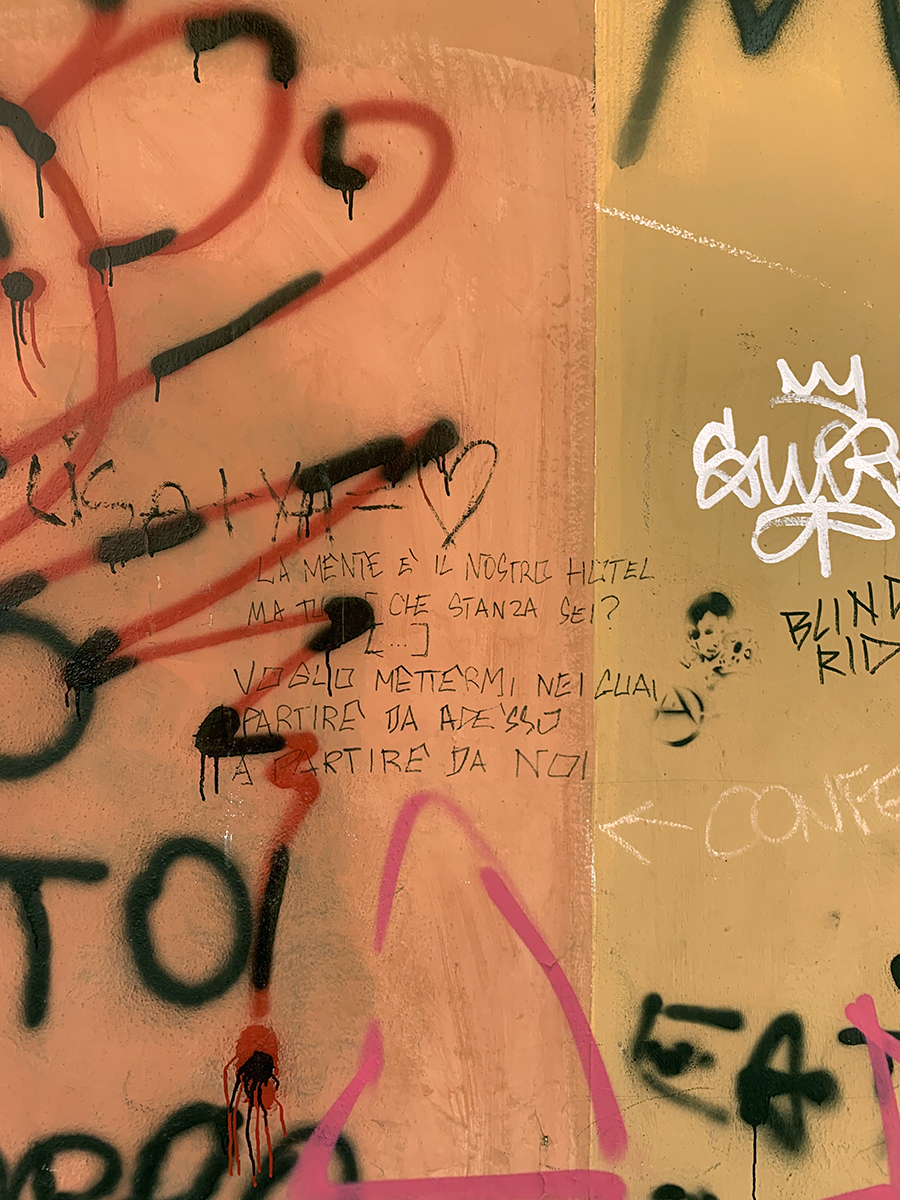 LISA + YA = ♡
LA MENTE È IL NOSTRO HOTEL
MA TU CHE STANZA SEI?
[...]
VOGLIO METTERMI NEI GUAI
PARTIRE DA ADESSO
A PARTIRE DA NOI
BLIND
RID
← CONFE
TO
EA